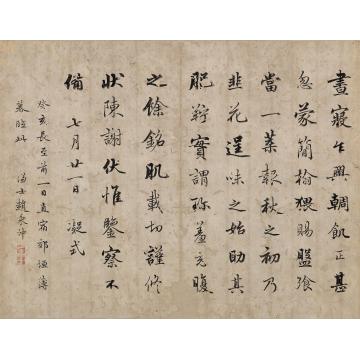 晝寢乍興輖飢正甚
忽蒙簡翰猥賜盤飧
當一葉報秋之初乃
韭花逞味之始助其
肥羜實謂珍羞充腹
之餘銘肌載切謹修
狀陳謝伏惟鑒察不
備 七月廿一日 凝式
癸亥長至前一日直宿薄
暮臨此 趙秉沖